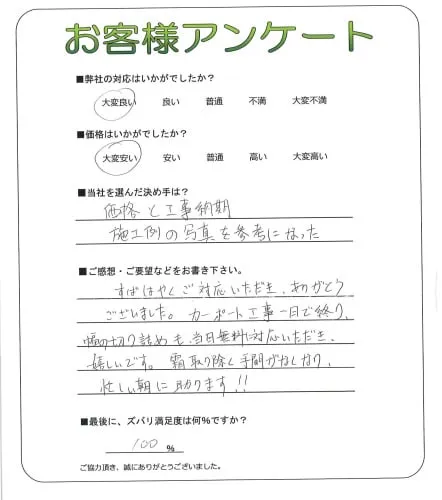 お客様アンケート
■弊社の対応はいかがでしたか？
大変良い 良い 普通 不満 大変不満
■価格はいかがでしたか？
大変安い 安い 普通 高い 大変高い
■当社を選んだ決め手は？
価格と工事納期
施工例の写真を参考になった
■ご感想・ご要望などをお書き下さい。
すばはやくご対応いただき、ありがとう
ございました。カーポート工事一日で終り、
幅の切り詰めも、当日無料に対応いただき、
嬉しいです。霜取り除く手間がなくなり、
忙しい朝に助ります!!
■最後に、ズバリ満足度は何％ですか？
100 ％
ご協力頂き、誠にありがとうございました。